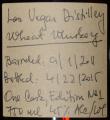 Las Vegas Distillery
Wheat Whiskey
Barreled: 9/1/2011
Bottled: 4/22/2015
One Cask Edition Nº1
750 mL 45% Alc/Vol